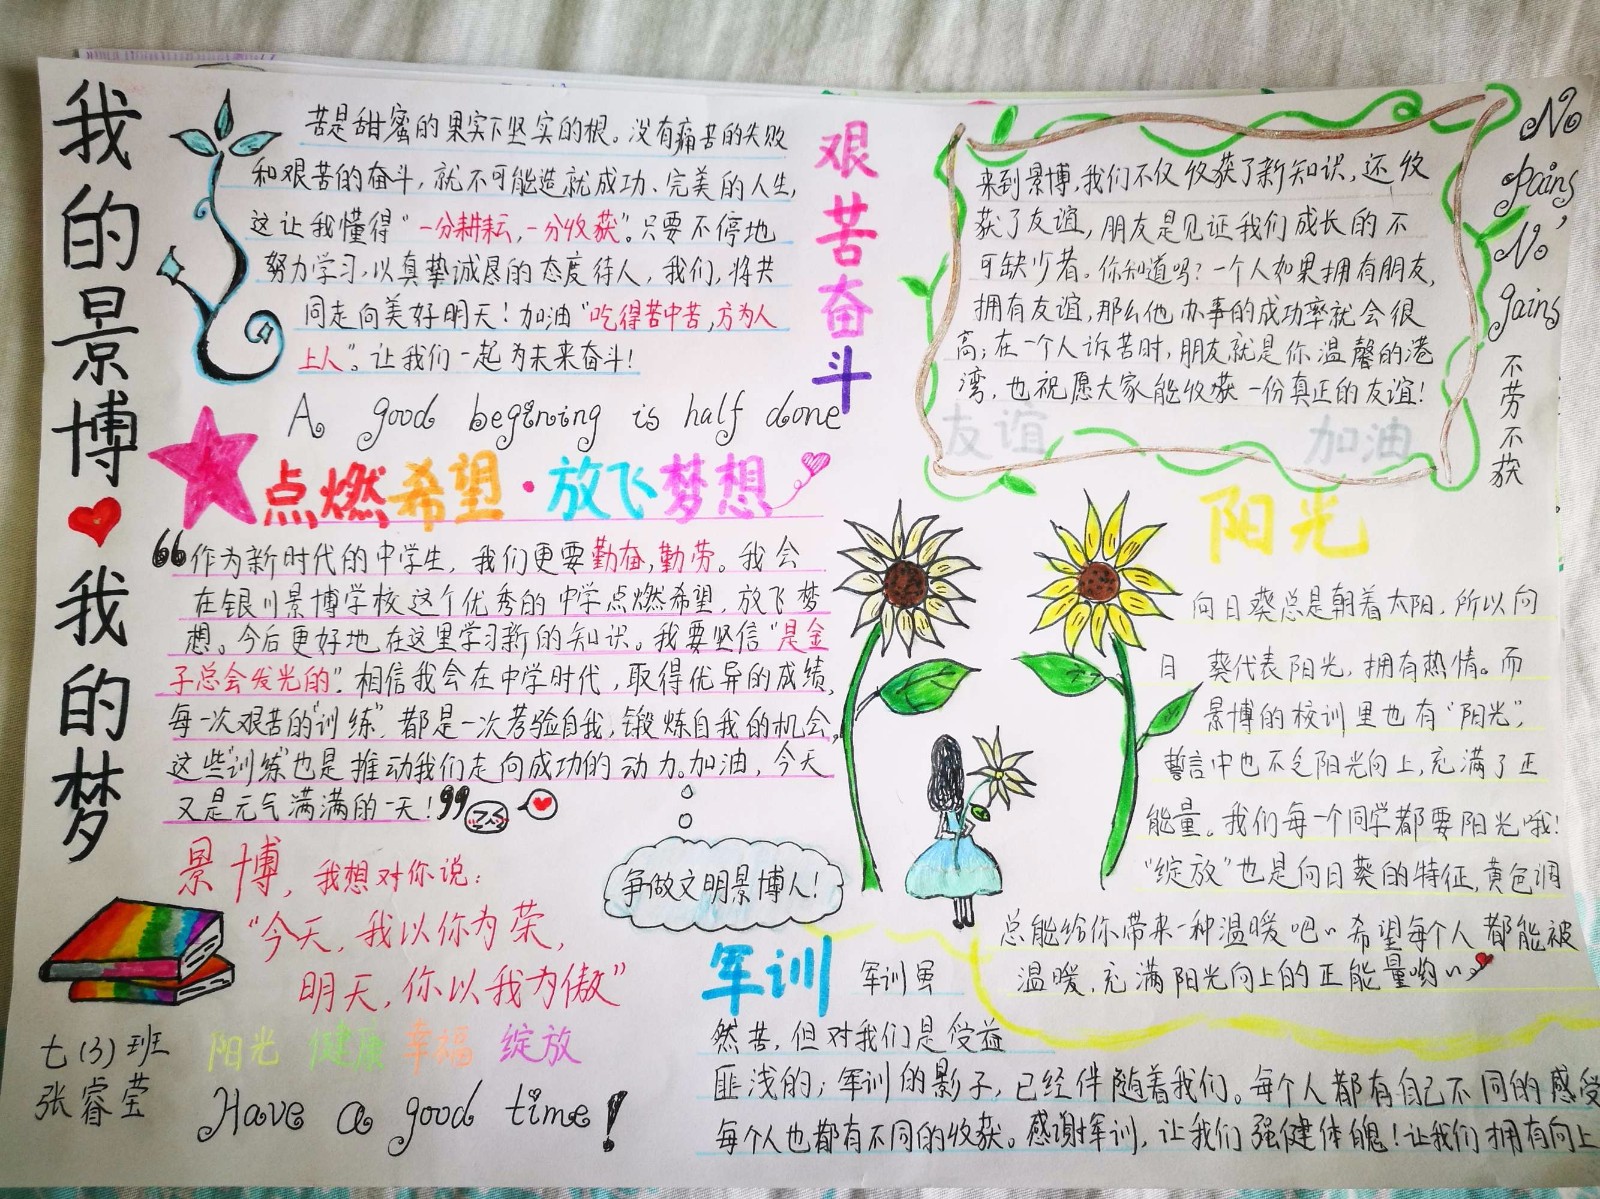 我的景博❤我的梦
苦是甜蜜的果实下坚实的根。没有痛苦的失败
和艰苦的奋斗,就不可能造就成功、完美的人生,
这让我懂得“一分耕耘,一分收获”。只要不停地
努力学习,以真挚诚恳的态度待人,我们,将共
同走向美好明天!加油“吃得苦中苦,方为人
上人”。让我们一起为未来奋斗!
艰苦奋斗
A good begining is half done
点燃希望·放飞梦想
“作为新时代的中学生,我们更要勤奋,勤劳。我会
在银川景博学校这个优秀的中学点燃希望,放飞梦
想。今后更好地在这里学习新的知识。我要坚信“是金
子总会发光的”。相信我会在中学时代,取得优异的成绩,
每一次艰苦的“训练”都是一次考验自我,锻炼自我的机会,
这些“训练”也是推动我们走向成功的动力。加油,今天
又是元气满满的一天!”
景博,我想对你说:
“今天,我以你为荣,
明天,你以我为傲”
阳光 健康 幸福 绽放
七(3)班
张睿莹
Have a good time!
争做文明景博人!
来到景博,我们不仅收获了新知识,还收
获了友谊,朋友是见证我们成长的不
可缺少者。你知道吗?一个人如果拥有朋友,
拥有友谊,那么他办事的成功率就会很
高;在一个人诉苦时,朋友就是你温馨的港
湾,也祝愿大家能收获一份真正的友谊!
友谊 加油
No
pains,
No
gains
不劳不获
阳光
向日葵总是朝着太阳,所以向
日葵代表阳光,拥有热情。而
景博的校训里也有“阳光”,
誓言中也不乏阳光向上,充满了正
能量。我们每一个同学都要阳光哦!
“绽放”也是向日葵的特征,黄色调
总能给你带来一种温暖吧~希望每个人都能被
温暖,充满阳光向上的正能量哟~
军训
军训虽
然苦,但对我们是受益
匪浅的;军训的影子,已经伴随着我们。每个人都有自己不同的感受
每个人也都有不同的收获。感谢军训,让我们强健体魄!让我们拥有向上